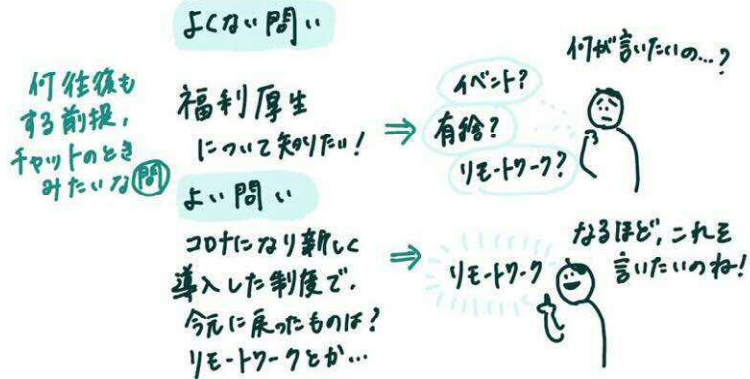 よくない問い
何往復も
する前提、
チャットのとき
みたいな問
福利厚生
について知りたい!
⇒
イベント?
有給?
リモートワーク?
何が言いたいの…?
よい問い
コロナになり新しく
導入した制度で、
今元に戻ったものは?
リモートワークとか…
⇒
リモートワーク
なるほど、これを
言いたいのね!